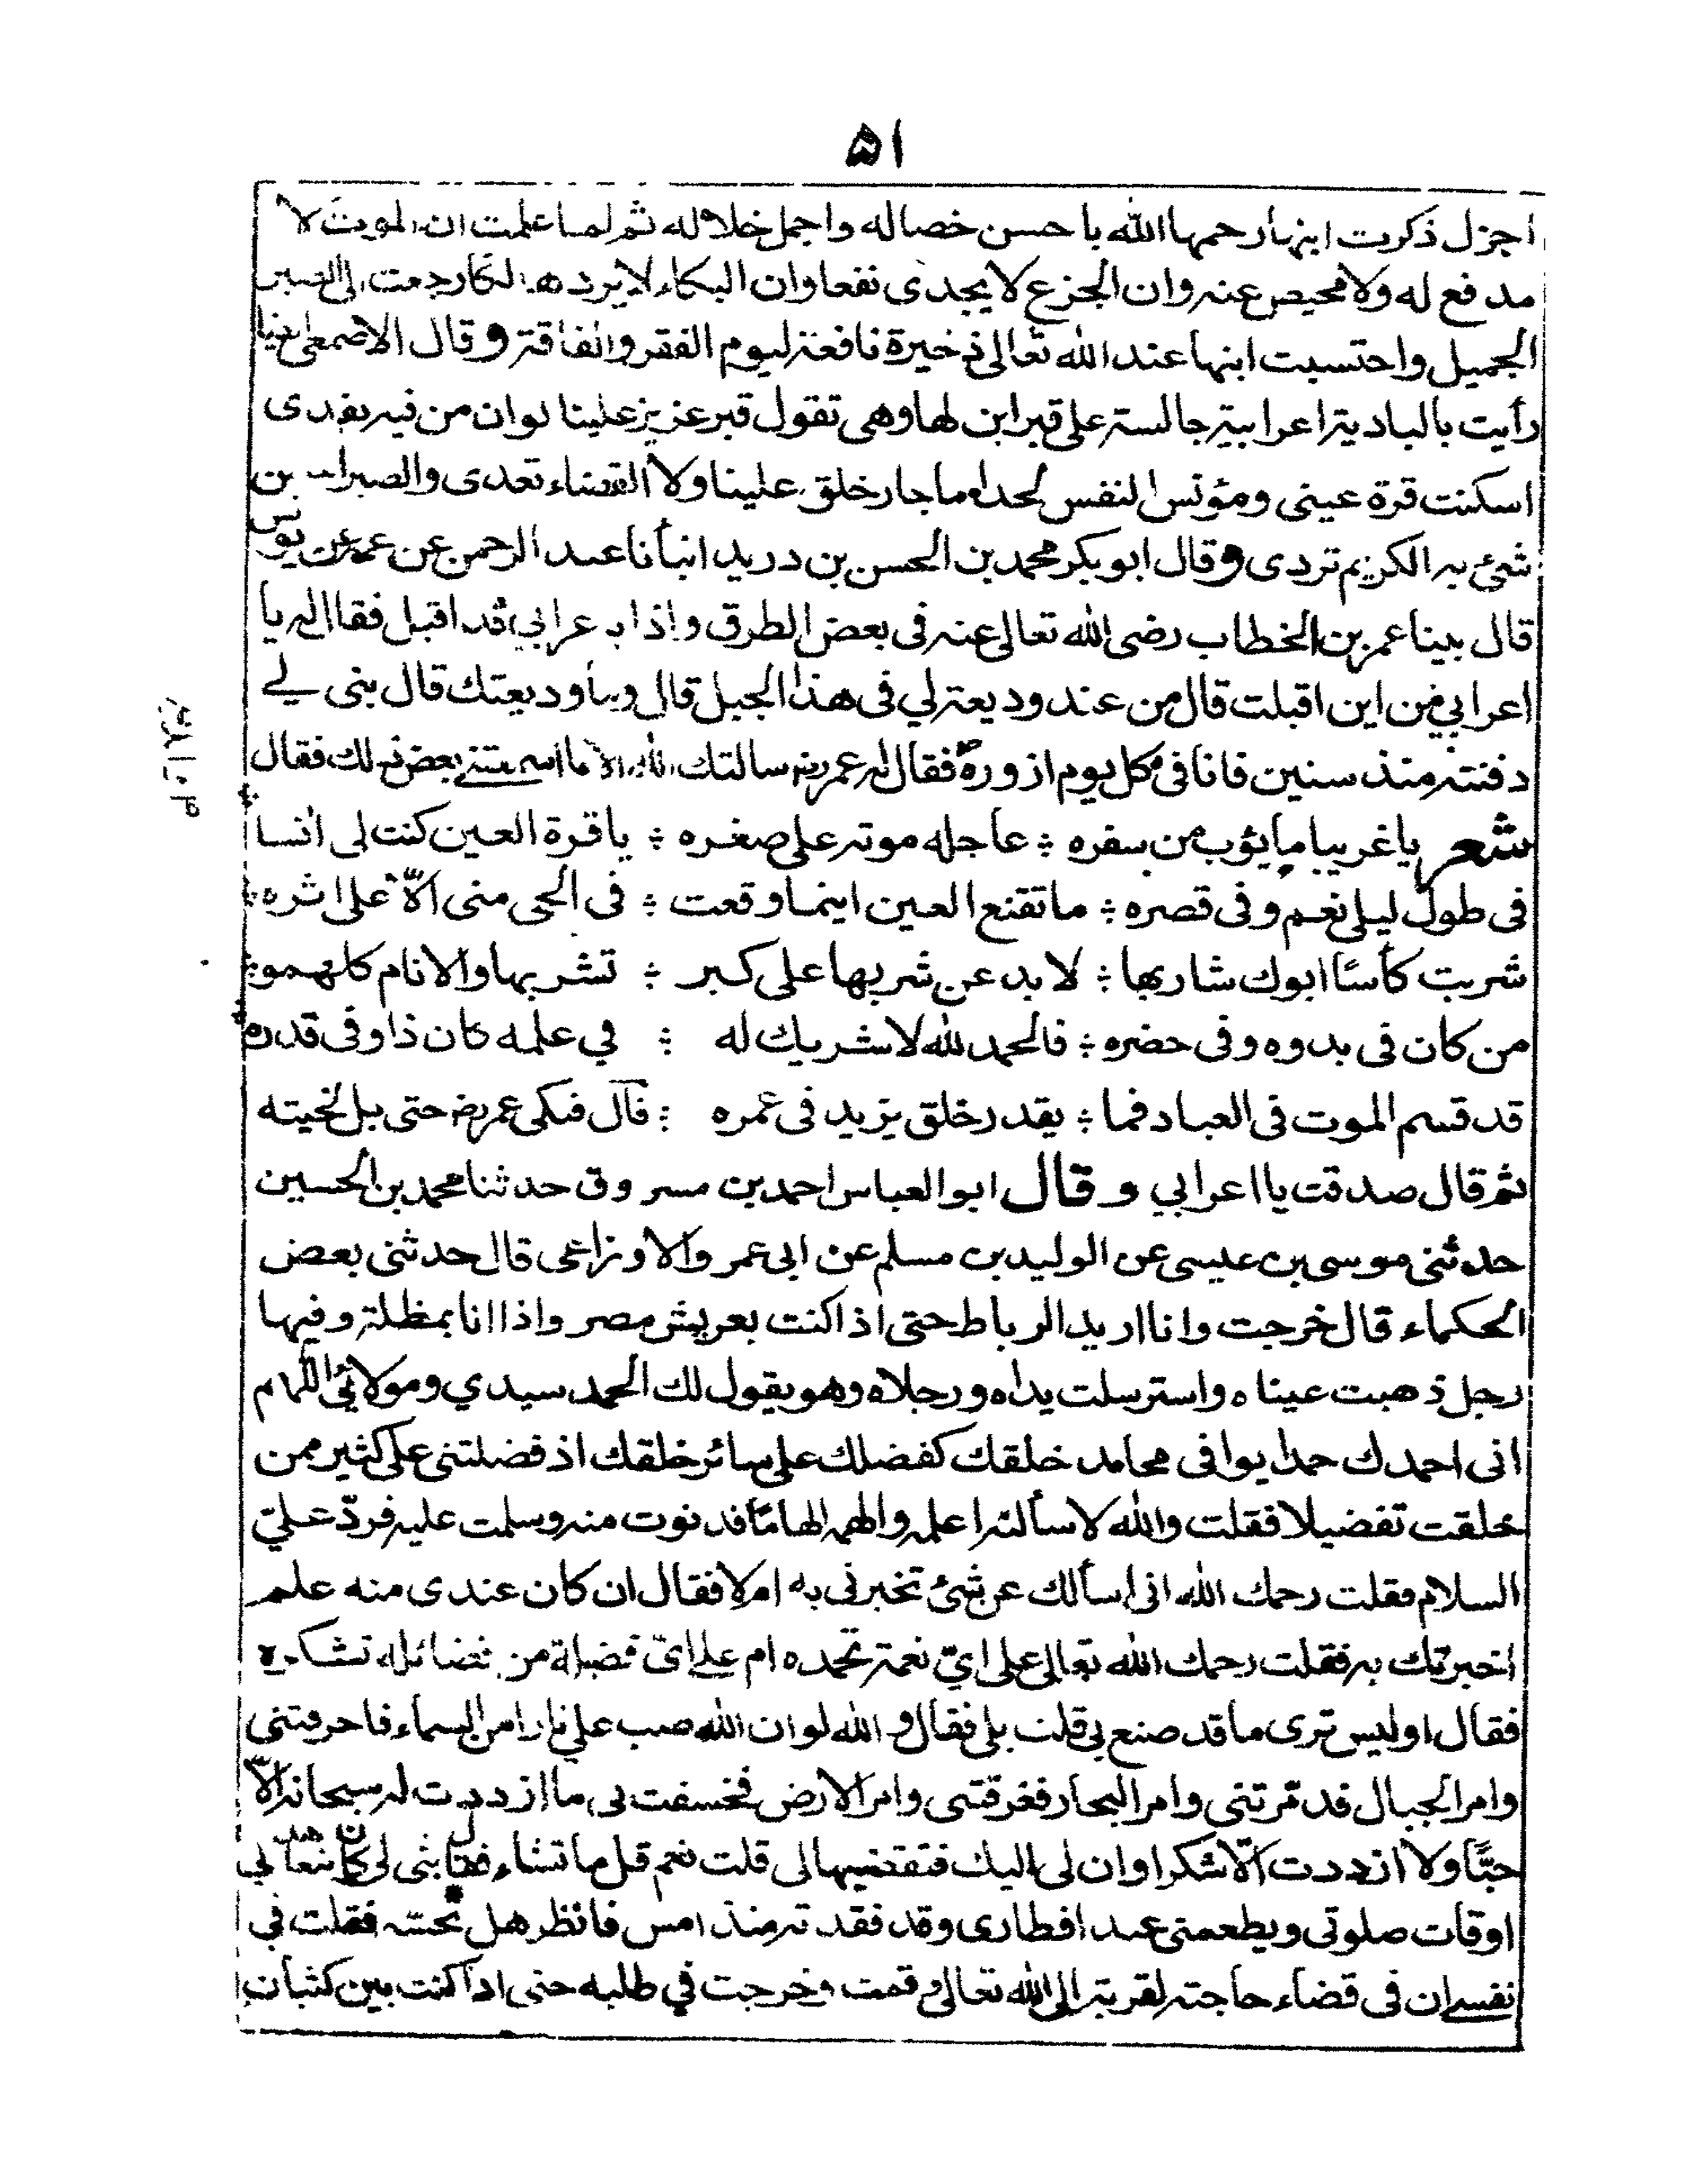 ۵۱
اجزل ذكرت ابنها رحمها الله باحسن خصاله واجمل خلاله ثم لما علمت ان الموت لا
مدفع له ولا محيص عنه وان الجزع لا يجدى نفعا وان البكاء لا يرد رجعت الى الصبر
الجميل واحتسبت ابنها عند الله تعالى ذخيرة نافعة ليوم الفقر والفاقة وقال الاصمعى
رأيت بالبادية اعرابية جالسة على قبر ابن لها وهى تقول قبر عزيز علينا لوان من فيه يفدى
اسكنت قرة عينى ومؤنس النفس لحدا ما جار خلق علينا ولا القضاء تعدى والصبر احسن
شئ به الكريم تردى وقال ابوبكر محمد بن الحسن بن دريد انبأنا عبد الرحمن عن عمه عن يونس
قال بينا عمر بن الخطاب رضى الله تعالى عنه فى بعض الطرق واذا باعرابي قد اقبل فقال له يا
اعرابي من اين اقبلت قال من عند وديعة لي فى هذا الجبل قال وما وديعتك قال بنى لے
دفنته منذ سنين فانا فى كل يوم ازوره فقال له عمر رضه سالتك الله الا ما اسمعتنى بعض ذلك فقال
شعر يا غريبا ما يؤب من سفره ؛ عاجله موته على صغره ؛ يا قرة العين كنت لى انسا ؛
فى طول ليلى نعم وفى قصره ؛ ما تقنع العين اينما وقعت ؛ فى الحى منى الّا على اثره ؛
شربت كأسًا ابوك شاربها ؛ لا بد عن شربها على كبر ؛ تشربها والانام كلهمو ؛
من كان فى بدوه وفى حضره ؛ فالحمد لله لا شريك له ؛ في علمه كان ذا وفى قدره ؛
قد قسم الموت فى العباد فما ؛ يقدر خلق يزيد فى عمره ؛ قال فبكى عمر رضه حتى بل لحيته
ثم قال صدقت يا اعرابي وقال ابو العباس احمد بن مسروق حدثنا محمد بن الحسين
حدثنى موسى بن عيسى عن الوليد بن مسلم عن ابى عمر والاوزاعى قال حدثنى بعض
الحكماء قال خرجت وانا اريد الرباط حتى اذا كنت بعريش مصر واذا انا بمظلة وفيها
رجل ذهبت عيناه واسترسلت يداه ورجلاه وهو يقول لك الحمد سيدي ومولائى اللهم
انى احمدك حمدا يوافى محامد خلقك كفضلك على سائر خلقك اذ فضلتنى على كثير ممن
خلقت تفضيلا فقلت والله لاسألنه اعلمه والهمه الهامًا فدنوت منه وسلمت عليه فردّ علىّ
السلام فقلت رحمك الله انى اسألك عن شئ تخبرنى به ام لا فقال ان كان عندى منه علم
اخبرتك به فقلت رحمك الله تعالى على اىّ نعمة تحمده ام على اىّ فضيلة من فضائله تشكره
فقال اوليس ترى ما قد صنع بى قلت بلى فقال والله لو ان الله صب على نارا من السماء فاحرقتنى
وامر الجبال فدمّرتنى وامر البحار فغرقتنى وامر الارض فخسفت بى ما ازددت له سبحانه الّا
حبًّا ولا ازددت الّا شكرا وان لى اليك فتقضيها لى قلت نعم قل ما تشاء فقال بنى لى كان
اوقات صلوتى ويطعمنى عند افطارى وقد فقدته منذ امس فانظر هل تحسّه فقلت فى
نفسى ان فى قضاء حاجته لقربة الى الله تعالى وقمت وخرجت في طلبه حتى اذا كنت بين كثبان